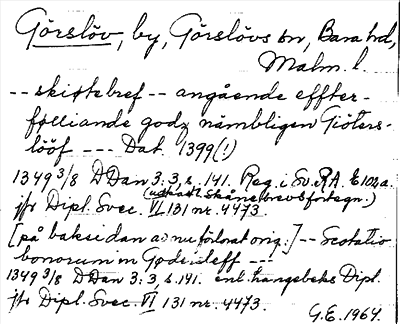 Görslöv, by, Görslövs sn, Bara hd,
Malm. l.
-- skiøtebref -- angående effter-
følliande godz nämbligen Giöters-
lööf --- Dat. 1399(!)
1349 3/8 DDan 3:3, s. 141. Reg. i Sv. RA. E 102a.
(udtåtl Skånebrevsförtegn.)
jfr Dipl. Svec. VI 131 nr. 4473.
[på baksidan av nu förlorat orig.] -- Scotatio
bonorum in Gødersleff ---
1349 3/8 DDan 3:3, s. 141. enl. Langebeks Dipl.
jfr Dipl. Svec. VI 131 nr. 4473.
G.E. 1964.